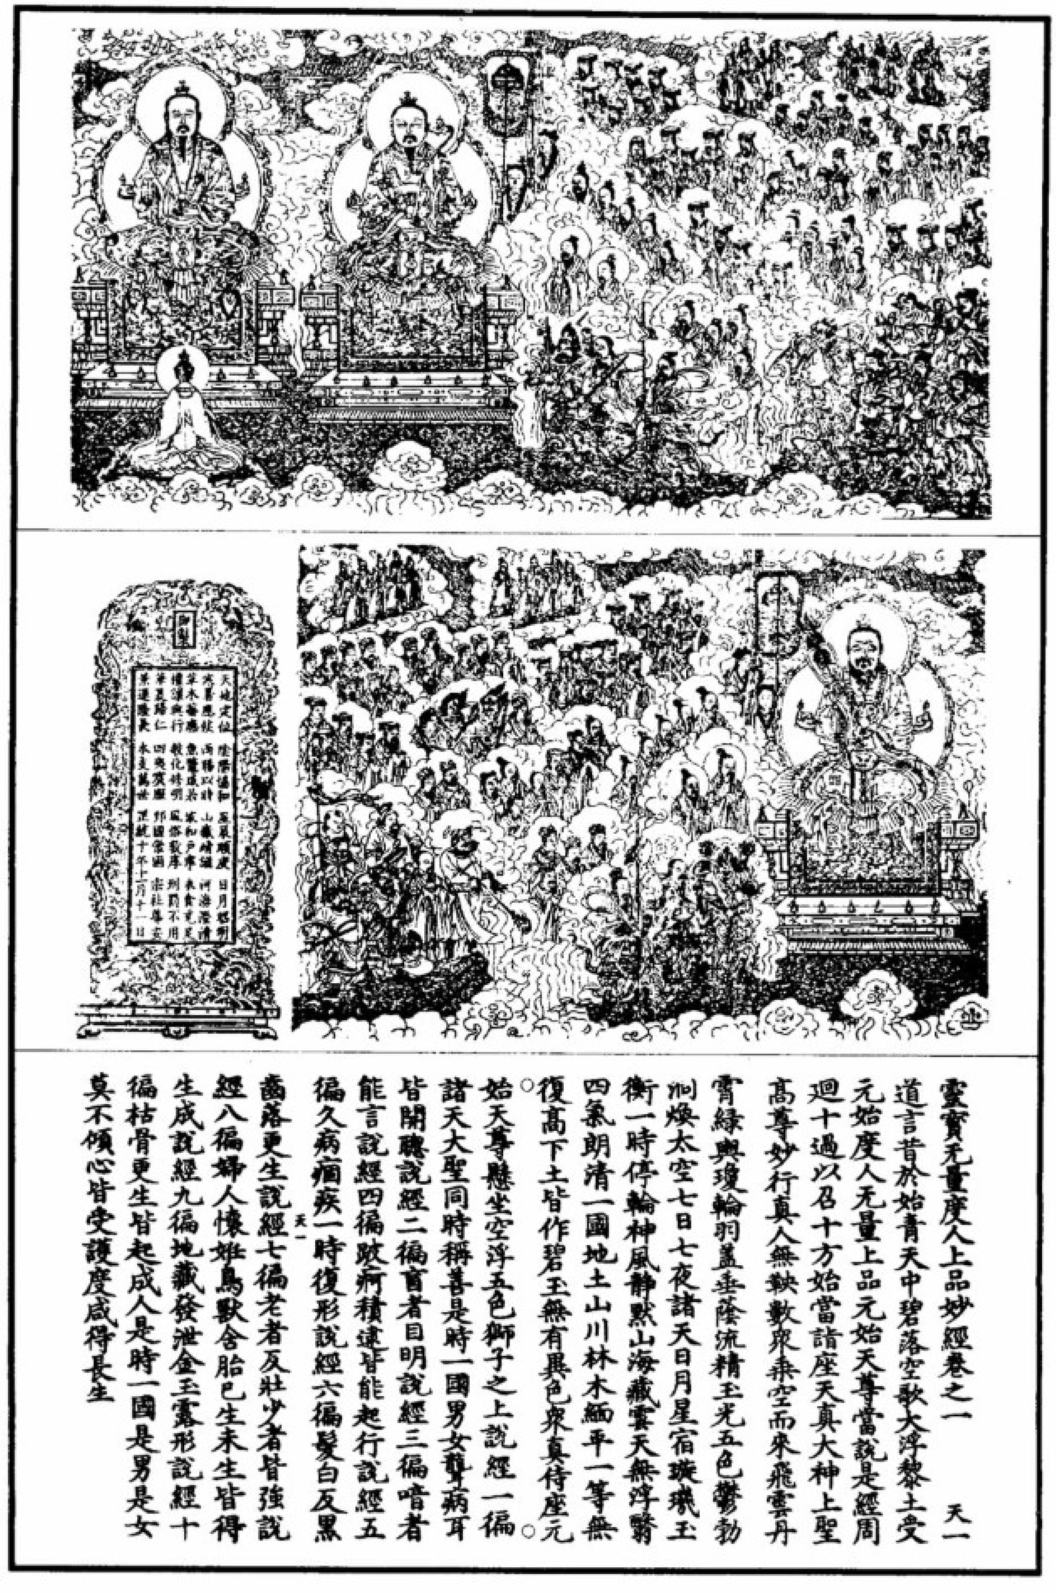 御製
天地定位 陰陽協和 星辰順度 日月昭明
寒暑應候 雨暘以時 山嶽靖謐 河海澄清
草木蕃廡 魚鱉咸若 家和戶寧 衣食充足
禮讓興行 教化修明 風俗敦厚 刑罰不用
華夏歸仁 四夷賓服 邦國鞏固 宗社尊安
景運隆長 本支萬世 正統十年十一月十一日
靈寶无量度人上品妙經卷之一 天一
道言昔於始青天中碧落空歌大浮黎土受
元始度人无量上品元始天尊當說是經周
迴十過以召十方始當詣座天真大神上聖
高尊妙行真人無鞅數眾乘空而來飛雲丹
霄綠輿瓊輪羽蓋垂蔭流精玉光五色鬱勃
洞煥太空七日七夜諸天日月星宿璇璣玉
衡一時停輪神風靜默山海藏雲天無浮翳
四氣朗清一國地土山川林木緬平一等無
復高下土皆作碧玉無有異色眾真侍座元
始天尊懸坐空浮五色獅子之上說經一徧
諸天大聖同時稱善是時一國男女聾病耳
皆開聰說經二徧盲者目明說經三徧喑者
能言說經四徧跛痾積逮皆能起行說經五
徧久病痼疾一時復形說經六徧髮白反黑
天一
齒落更生說經七徧老者反壯少者皆強說
經八徧婦人懷妊鳥獸含胎已生未生皆得
生成說經九徧地藏發泄金玉露形說經十
徧枯骨更生皆起成人是時一國是男是女
莫不傾心皆受護度咸得長生